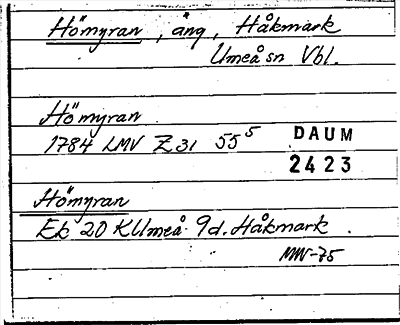 Hömyran, äng, Håkmark
Umeå sn Vbl.
Hömyran
1784 LMV Z 31 55⁵ DAUM
2423
Hömyran
Ek 20 K Umeå 9d. Håkmark.
MW-75